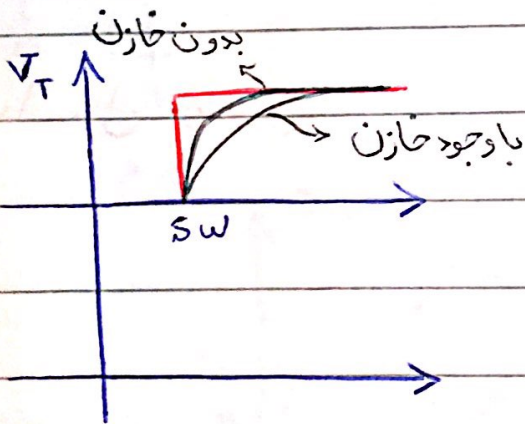 بدون خازن
V_T
با وجود خازن
SW